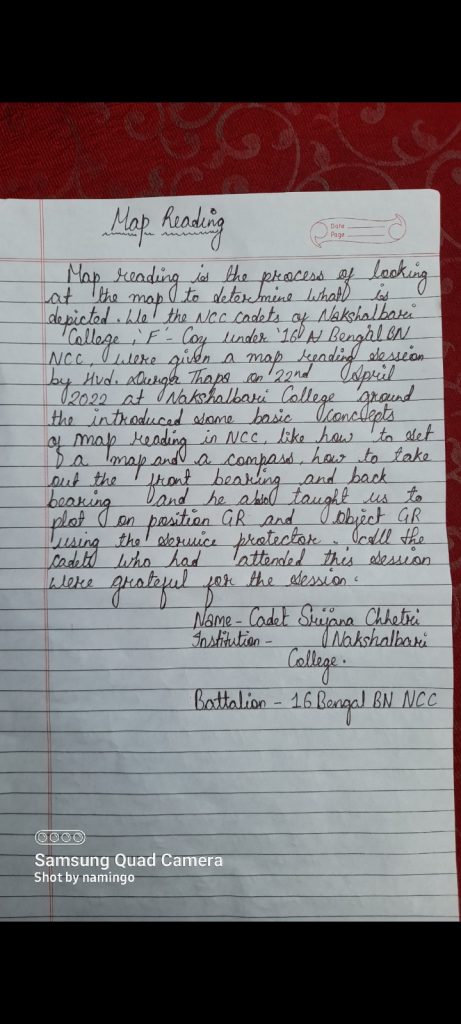 Map Reading
Date
Page
Map reading is the process of looking
at the map to determine what is
depicted. We the NCC cadets of Nakshalbari
College, 'F'- Coy under '16 N Bengal BN
NCC, were given a map reading session
by Hvd. Durga Thapa on 22nd April
2022 at Nakshalbari College ground
the introduced some basic concepts
of map reading in NCC, like how to set
a map and a compass, how to take
out the front bearing and back
bearing and he also taught us to
plot on position GR and object GR
using the service protector. All the
cadets who had attended this session
were grateful for the session.
Name - Cadet Srijana Chhetri
Institution - Nakshalbari
College.
Battalion - 16 Bengal BN NCC
Samsung Quad Camera
Shot by namingo